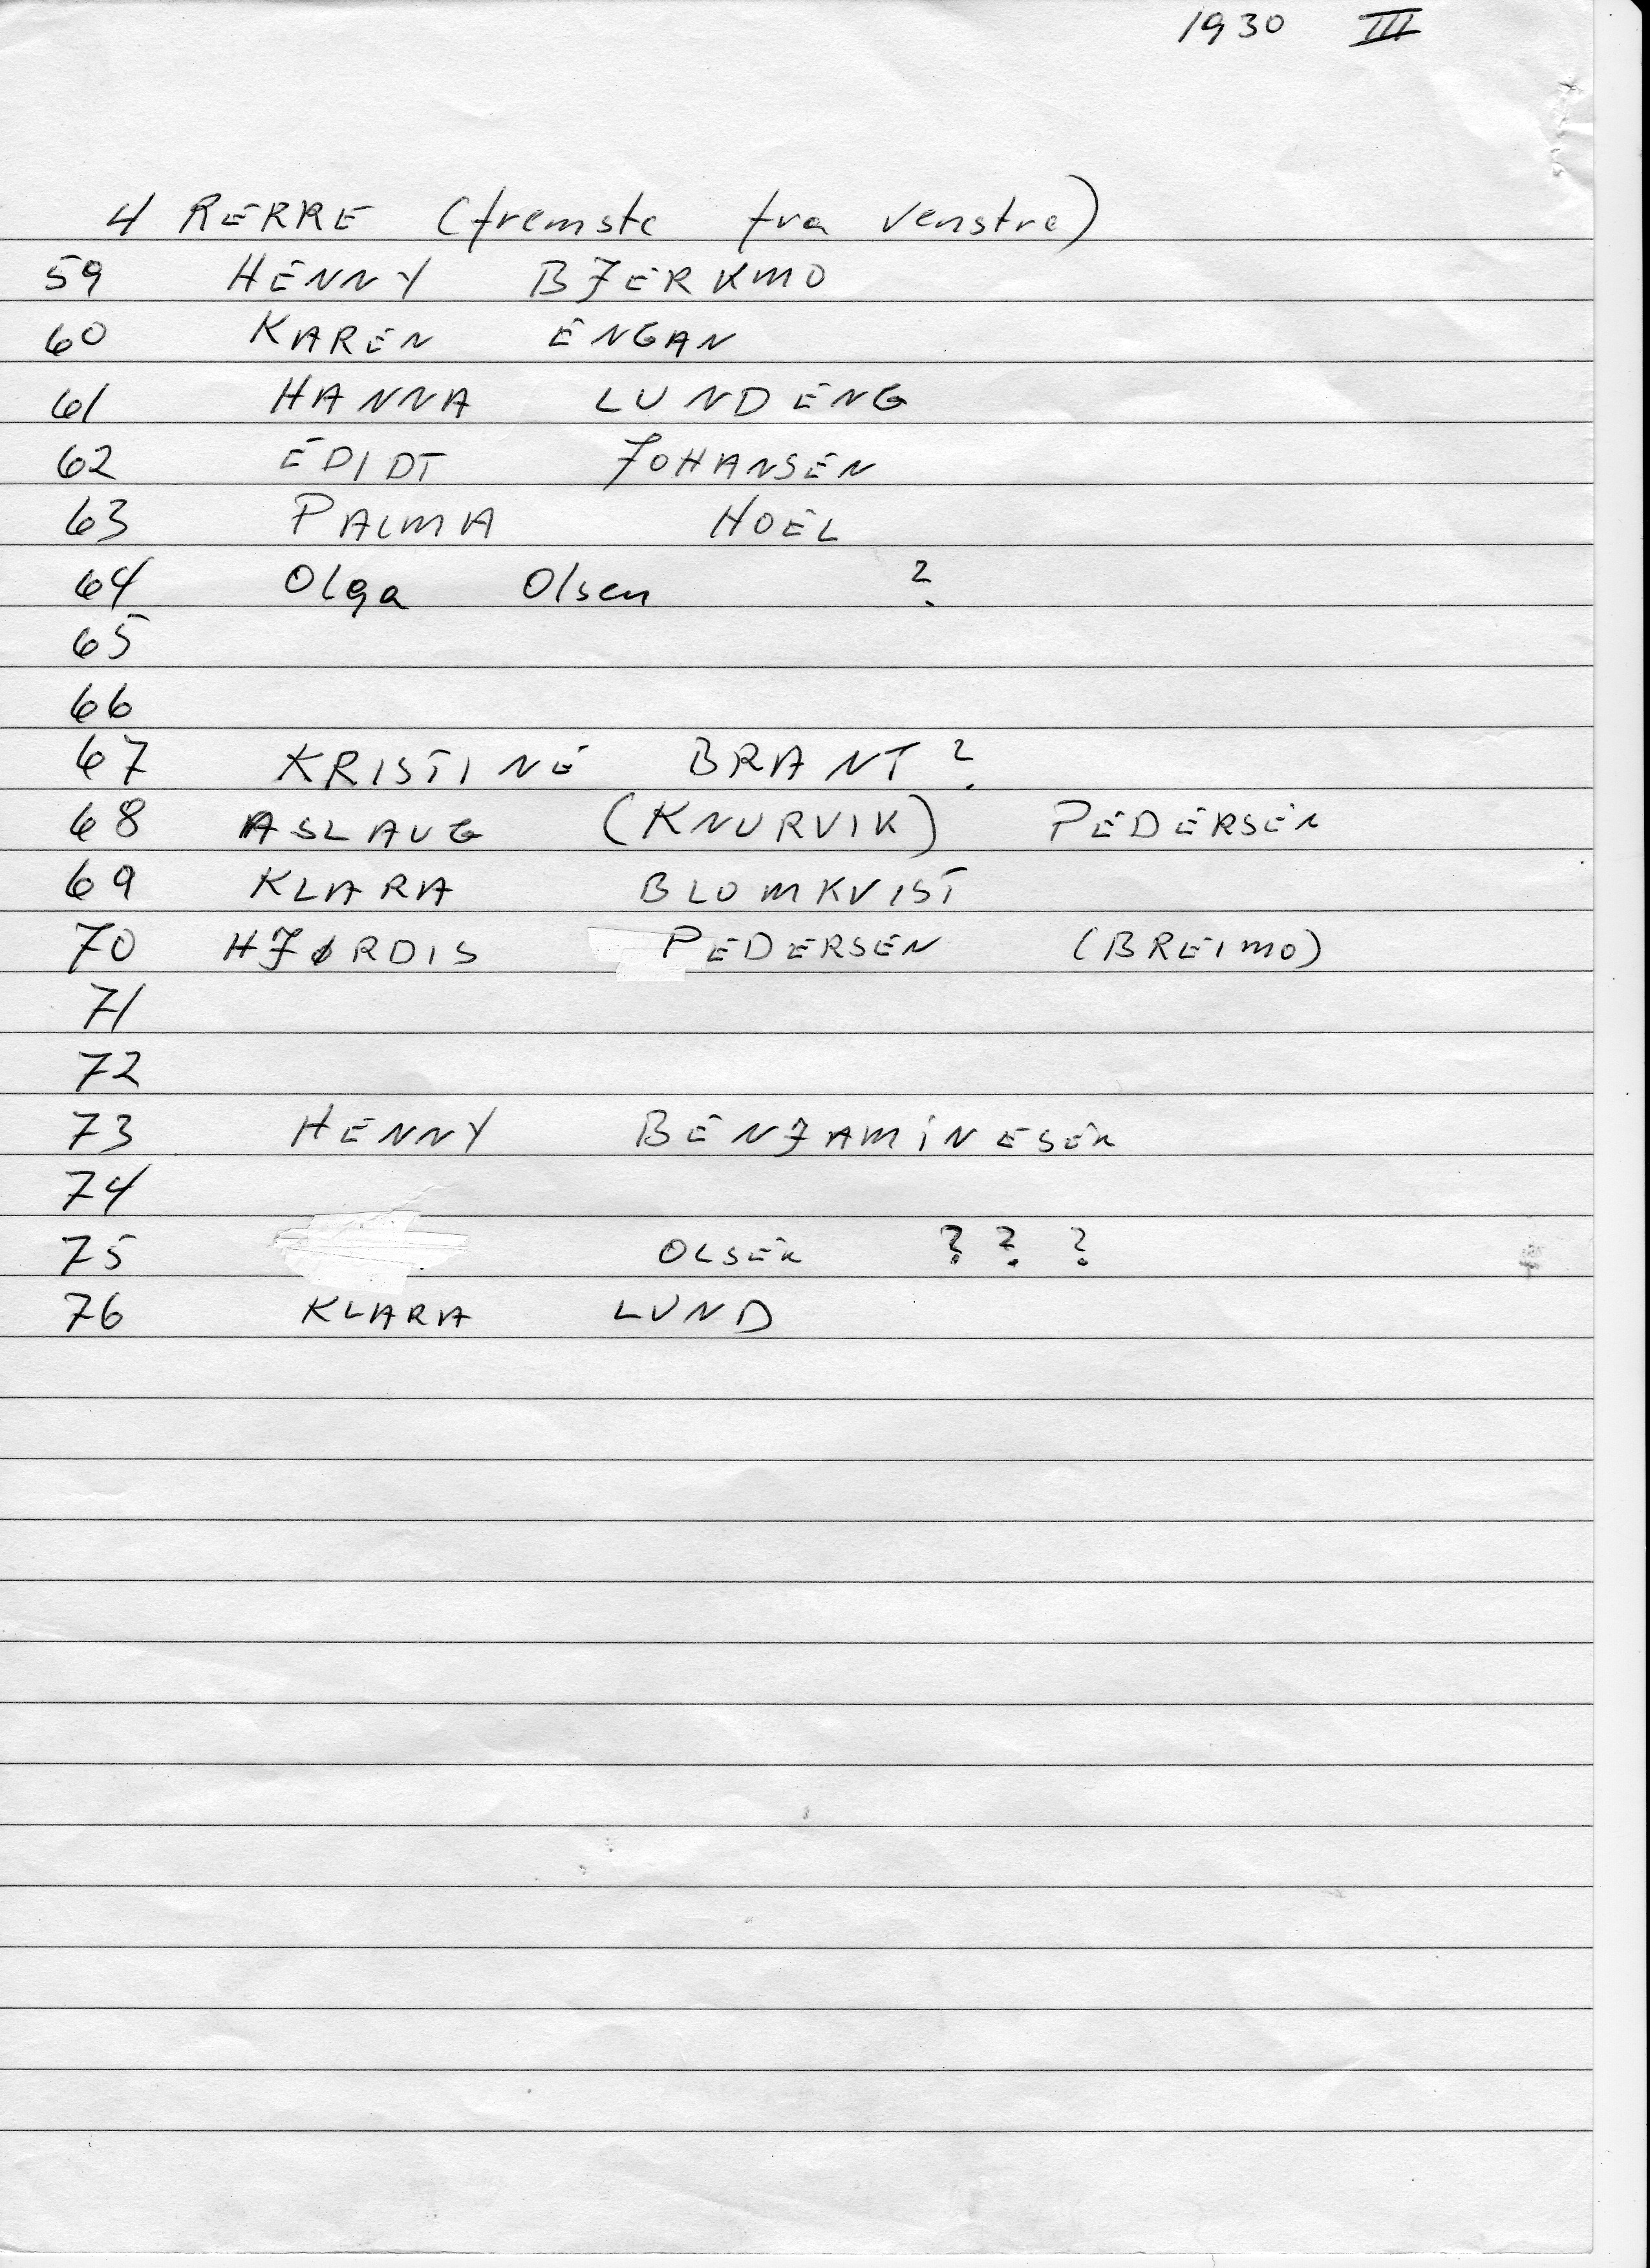 1930 III
4 RERRE (fremste fra venstre)
59 HENNY BJERKMO
60 KAREN ENGAN
61 HANNA LUNDENG
62 EDIDT JOHANSEN
63 PALMA HOEL
64 Olga Olsen ?
65
66
67 KRISTINE BRANT ?
68 ASLAUG (KNURVIK) PEDERSEN
69 KLARA BLOMKVIST
70 HJØRDIS PEDERSEN (BREIMO)
71
72
73 HENNY BENJAMINESEN
74
75 OLSEN ? ? ?
76 KLARA LUND